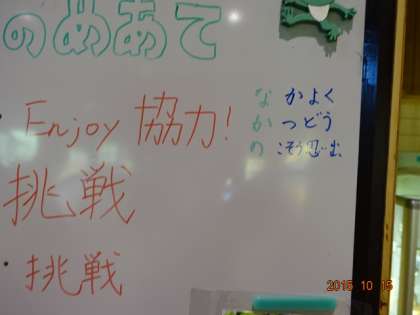 のめあて
Enjoy 協力!
挑戦
挑戦
なかよく
かつどう
のこそう思い出
2015 10 15